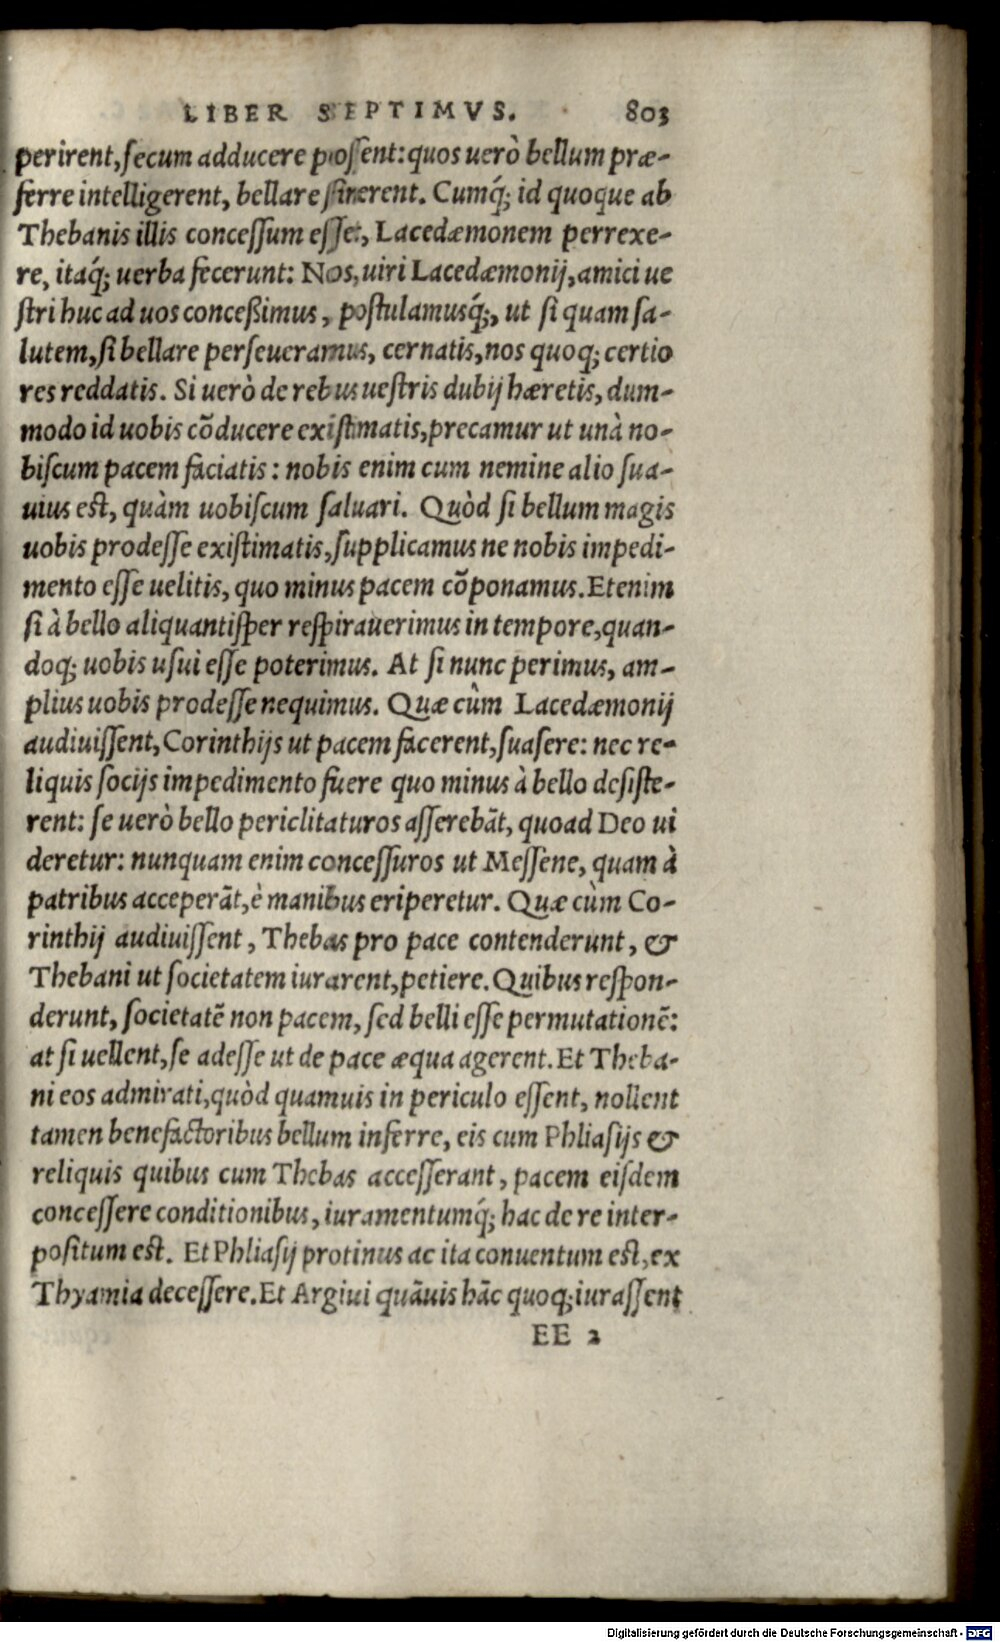 LIBER SEPTIMVS. 803
perirent,secum adducere possent:quos uerò bellum præ-
ferre intelligerent, bellare sinerent. Cumq́; id quoque ab
Thebanis illis concessum esset, Lacedæmonem perrexe-
re, itaq́; uerba fecerunt: Nos, uiri Lacedæmonij, amici ue
stri huc ad uos conceßimus, postulamusq́;, ut si quam sa-
lutem,si bellare perseueramus, cernatis,nos quoq; certio
res reddatis. Si uerò de rebus uestris dubij hæretis, dum-
modo id uobis cõducere existimatis,precamur ut unà no-
biscum pacem faciatis: nobis enim cum nemine alio sua-
uius est, quàm uobiscum saluari. Quòd si bellum magis
uobis prodesse existimatis,supplicamus ne nobis impedi-
mento esse uelitis, quo minus pacem cõponamus.Etenim
si à bello aliquantisper respirauerimus in tempore,quan-
doq; uobis usui esse poterimus. At si nunc perimus, am-
plius uobis prodesse nequimus. Quæ cùm Lacedæmonij
audiuissent,Corinthijs ut pacem facerent,suasere: nec re-
liquis socijs impedimento fuere quo minus à bello desiste-
rent: se uerò bello periclitaturos asserebãt, quoad Deo ui
deretur: nunquam enim concessuros ut Messene, quam à
patribus acceperãt,è manibus eriperetur. Quæ cùm Co-
rinthij audiuissent, Thebas pro pace contenderunt, &
Thebani ut societatem iurarent,petiere. Quibus respon-
derunt, societatẽ non pacem, sed belli esse permutationẽ:
at si uellent,se adesse ut de pace æqua agerent. Et Theba-
ni eos admirati,quòd quamuis in periculo essent, nollent
tamen benefactoribus bellum inferre, eis cum Phliasijs &
reliquis quibus cum Thebas accesserant, pacem eisdem
concessere conditionibus, iuramentumq́; hac de re inter-
positum est. Et Phliasij protinus ac ita conuentum est,ex
Thyamia decessere.Et Argiui quãuis hãc quoq;iurassent
EE 2
Digitalisierung gefördert durch die Deutsche Forschungsgemeinschaft - DFG